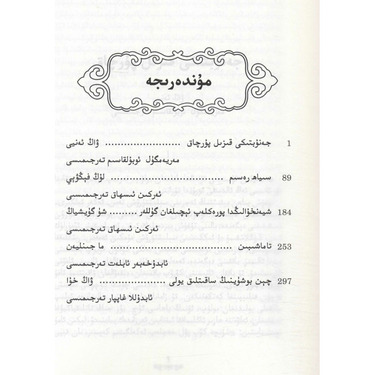 مۇندەرىجە
جەنۇبتىكى قىزىل پۇرچاق ........................ ۋاڭ ئەنيى 1
مەريەمگۈل ئوبۇلقاسىم تەرجىمىسى
سىياھ رەسىم ........................ لۈڭ فېڭۋېي 89
ئەركىن ئىسھاق تەرجىمىسى
شيەنخۇالىڭدا پورەكلەپ ئېچىلغان گۈللەر ......... شۇ گۇيشياڭ 184
ئەركىن ئىسھاق تەرجىمىسى
تاماشىبىن ........................ ما جىنليەن 253
ئابدۇخەبەر ئابلەت تەرجىمىسى
چېن بوشۈينىڭ ساقىتلىق يولى ............... ۋاڭ خۇا 297
ئابدۇللا غاپپار تەرجىمىسى